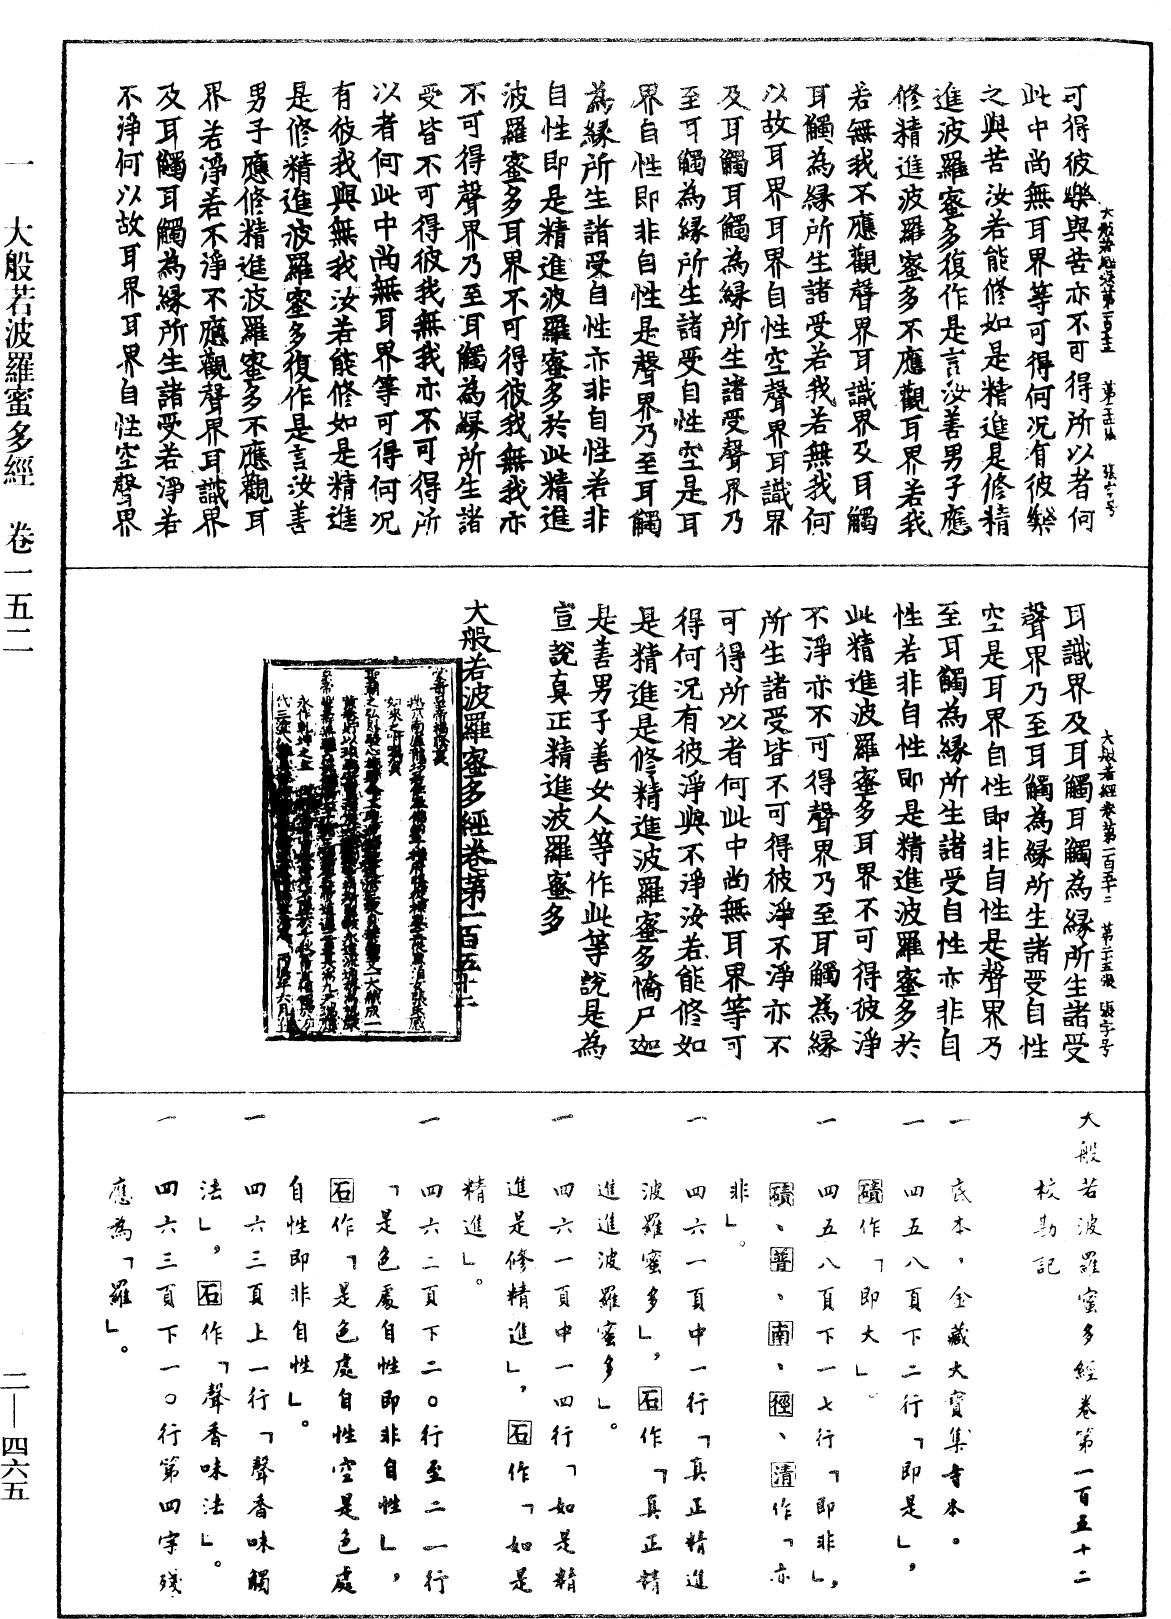 大般若經卷第一百五十二 第二十五張 張字号
可得彼樂與苦亦不可得所以者何
此中尚無耳界等可得何況有彼樂
之與苦汝若能修如是精進是修精
進波羅蜜多復作是言汝善男子應
修精進波羅蜜多不應觀耳界若我
若無我不應觀聲界耳識界及耳觸
耳觸為緣所生諸受若我若無我何
以故耳界耳界自性空聲界耳識界
及耳觸耳觸為緣所生諸受聲界乃
至耳觸為緣所生諸受自性空是耳
界自性即非自性是聲界乃至耳觸
為緣所生諸受自性亦非自性若非
自性即是精進波羅蜜多於此精進
波羅蜜多耳界不可得彼我無我亦
不可得聲界乃至耳觸為緣所生諸
受皆不可得彼我無我亦不可得所
以者何此中尚無耳界等可得何況
有彼我與無我汝若能修如是精進
是修精進波羅蜜多復作是言汝善
男子應修精進波羅蜜多不應觀耳
界若淨若不淨不應觀聲界耳識界
及耳觸耳觸為緣所生諸受若淨若
不淨何以故耳界耳界自性空聲界
大般若經卷第一百五十二 第二十五張 張字号
耳識界及耳觸耳觸為緣所生諸受
聲界乃至耳觸為緣所生諸受自性
空是耳界自性即非自性是聲界乃
至耳觸為緣所生諸受自性亦非自
性若非自性即是精進波羅蜜多於
此精進波羅蜜多耳界不可得彼淨
不淨亦不可得聲界乃至耳觸為緣
所生諸受皆不可得彼淨不淨亦不
可得所以者何此中尚無耳界等可
得何況有彼淨與不淨汝若能修如
是精進是修精進波羅蜜多憍尸迦
是善男子善女人等作此等說是為
宣說真正精進波羅蜜多
大般若波羅蜜多經卷第一百五十二
大般若波羅蜜多經卷第一百五十二
校勘記
一 底本，金藏大寶集寺本。
一 四五八頁下二行「即是」，
磧作「即大」。
一 四五八頁下一七行「即非」，
磧、普、南、徑、清作「亦
非」。
一 四六一頁中一行「真正精進
波羅蜜多」，石作「真正精
進進波羅蜜多」。
一 四六一頁中一四行「如是精
進是修精進」，石作「如是
精進」。
一 四六二頁下二〇行至二一行
「是色處自性即非自性」，
石作「是色處自性空是色處
自性即非自性」。
一 四六三頁上一行「聲香味觸
法」，石作「聲香味法」。
一 四六三頁下一〇行第四字殘
應為「羅」。
一 大般若波羅蜜多經 卷一五二
二—四六五